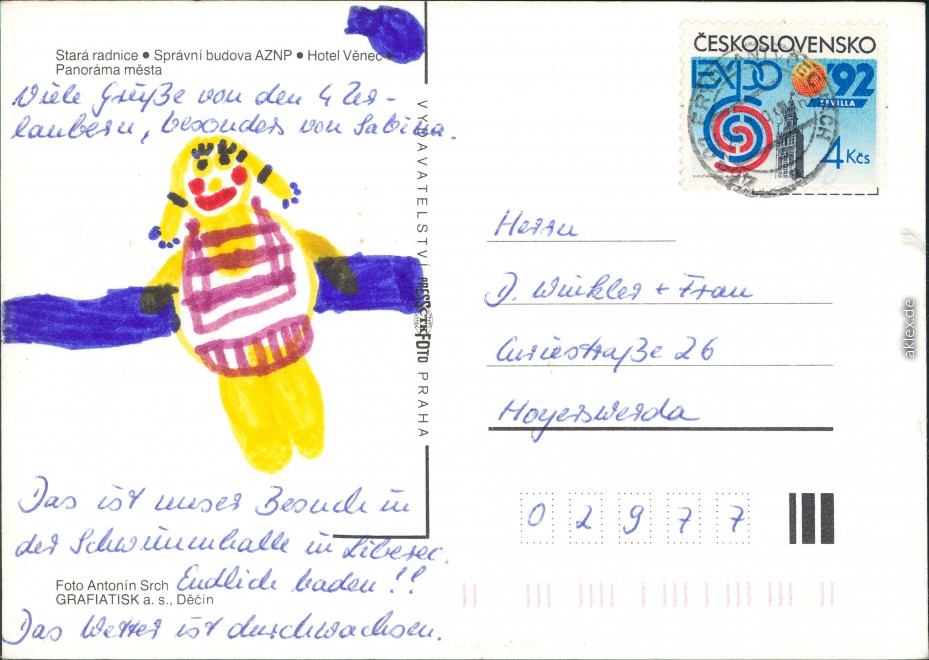 Stará radnice ● Správní budova AZNP ● Hotel Věnec ●
Panoráma města
Viele Grüße von den 4 Ur-
laubern, besonders von Sabina.
Das ist unser Besuch in
der Schwimmhalle in Liberec.
Endlich baden!!
Das Wetter ist durchwachsen.
Foto Antonín Srch
GRAFIATISK a. s., Děčín
VYDAVATELSTVÍ PRESSFOTO PRAHA
ČTK
ČESKOSLOVENSKO
EXPO '92
SEVILLA
4 Kčs
Herrn
D. Winkler + Frau
Curiestraße 26
Hoyerswerda
02977
aklex.de